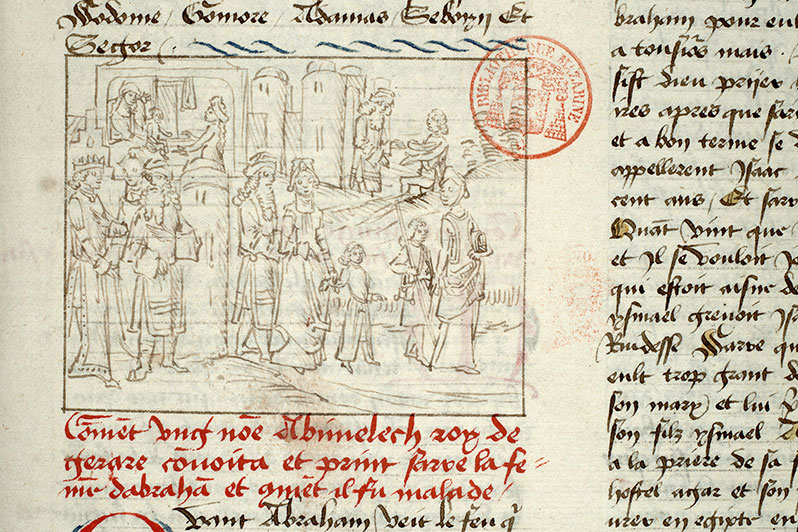 Sodome / Gomore / Adamas / Seboyn Et
Segor /.
BIBLIOTHEQUE MAZARINE
Commēt vng nōe Abimelech roy de
gerare cōuoita et print sarre la fe-
me dabrahā et quēt il fu malade .
Quant Abraham veit le feu q̄
braham pour
a tousiōrs mais .
fist dieu prijer
res apres que sar
et a bon terme se
appellerent Isaac
cent ans / Et sarr
Quant vint que
et Il se vouloit
qui estoit aisne de
ysmael greuoit Is
Rudesse Sarre qu
eult trop grant d
son mary et lui
son filz ysmael
a la priere de sa
hostel agar et son
urer en egipte en